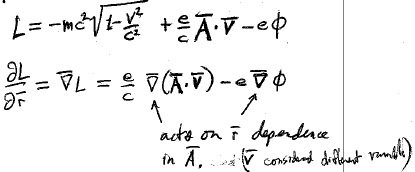 L = -mc²√(1-v²/c²) + e/c A̅·v̅ - eφ
∂L/∂r̅ = ∇̅L = e/c ∇̅(A̅·v̅) - e∇̅φ
acts on r̅ dependence
in A̅, (v̅ considered different variable)